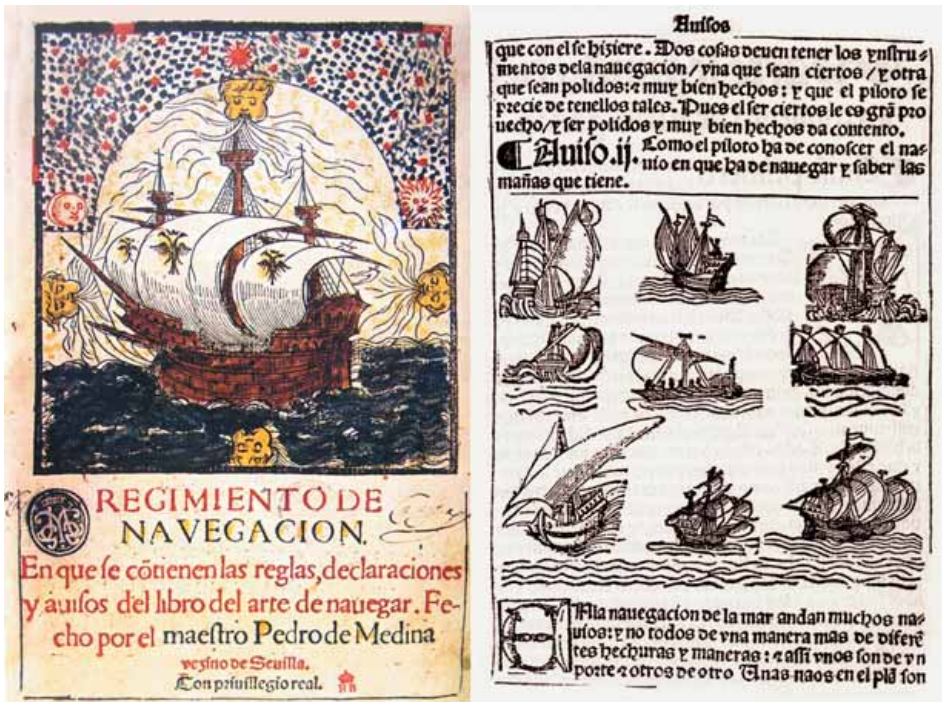 REGIMIENTO DE
NAVEGACION.
En que se cōtienen las reglas, declaraciones
y auisos del libro del arte de nauegar. Fe-
cho por el maestro Pedro de Medina
vezino de Seuilla.
Con priuillegio real.
Auisos
que con el se hiziere. Dos cosas deuen tener los ynstru-
mentos dela nauegacion / vna que sean ciertos / y otra
que sean polidos: ⁊ muy bien hechos: y que el piloto se
precie de tenellos tales. Pues el ser ciertos le es grā pro
uecho / y ser polidos y muy bien hechos da contento.
Auiso. ij. Como el piloto ha de conoscer el na-
uio en que ha de nauegar y saber las
mañas que tiene.
EN la nauegacion de la mar andan muchos na-
uios: y no todos de vna manera mas de diferē
tes hechuras y maneras: ⁊ assi vnos son de vn
porte ⁊ otros de otro Unas naos en el plā son